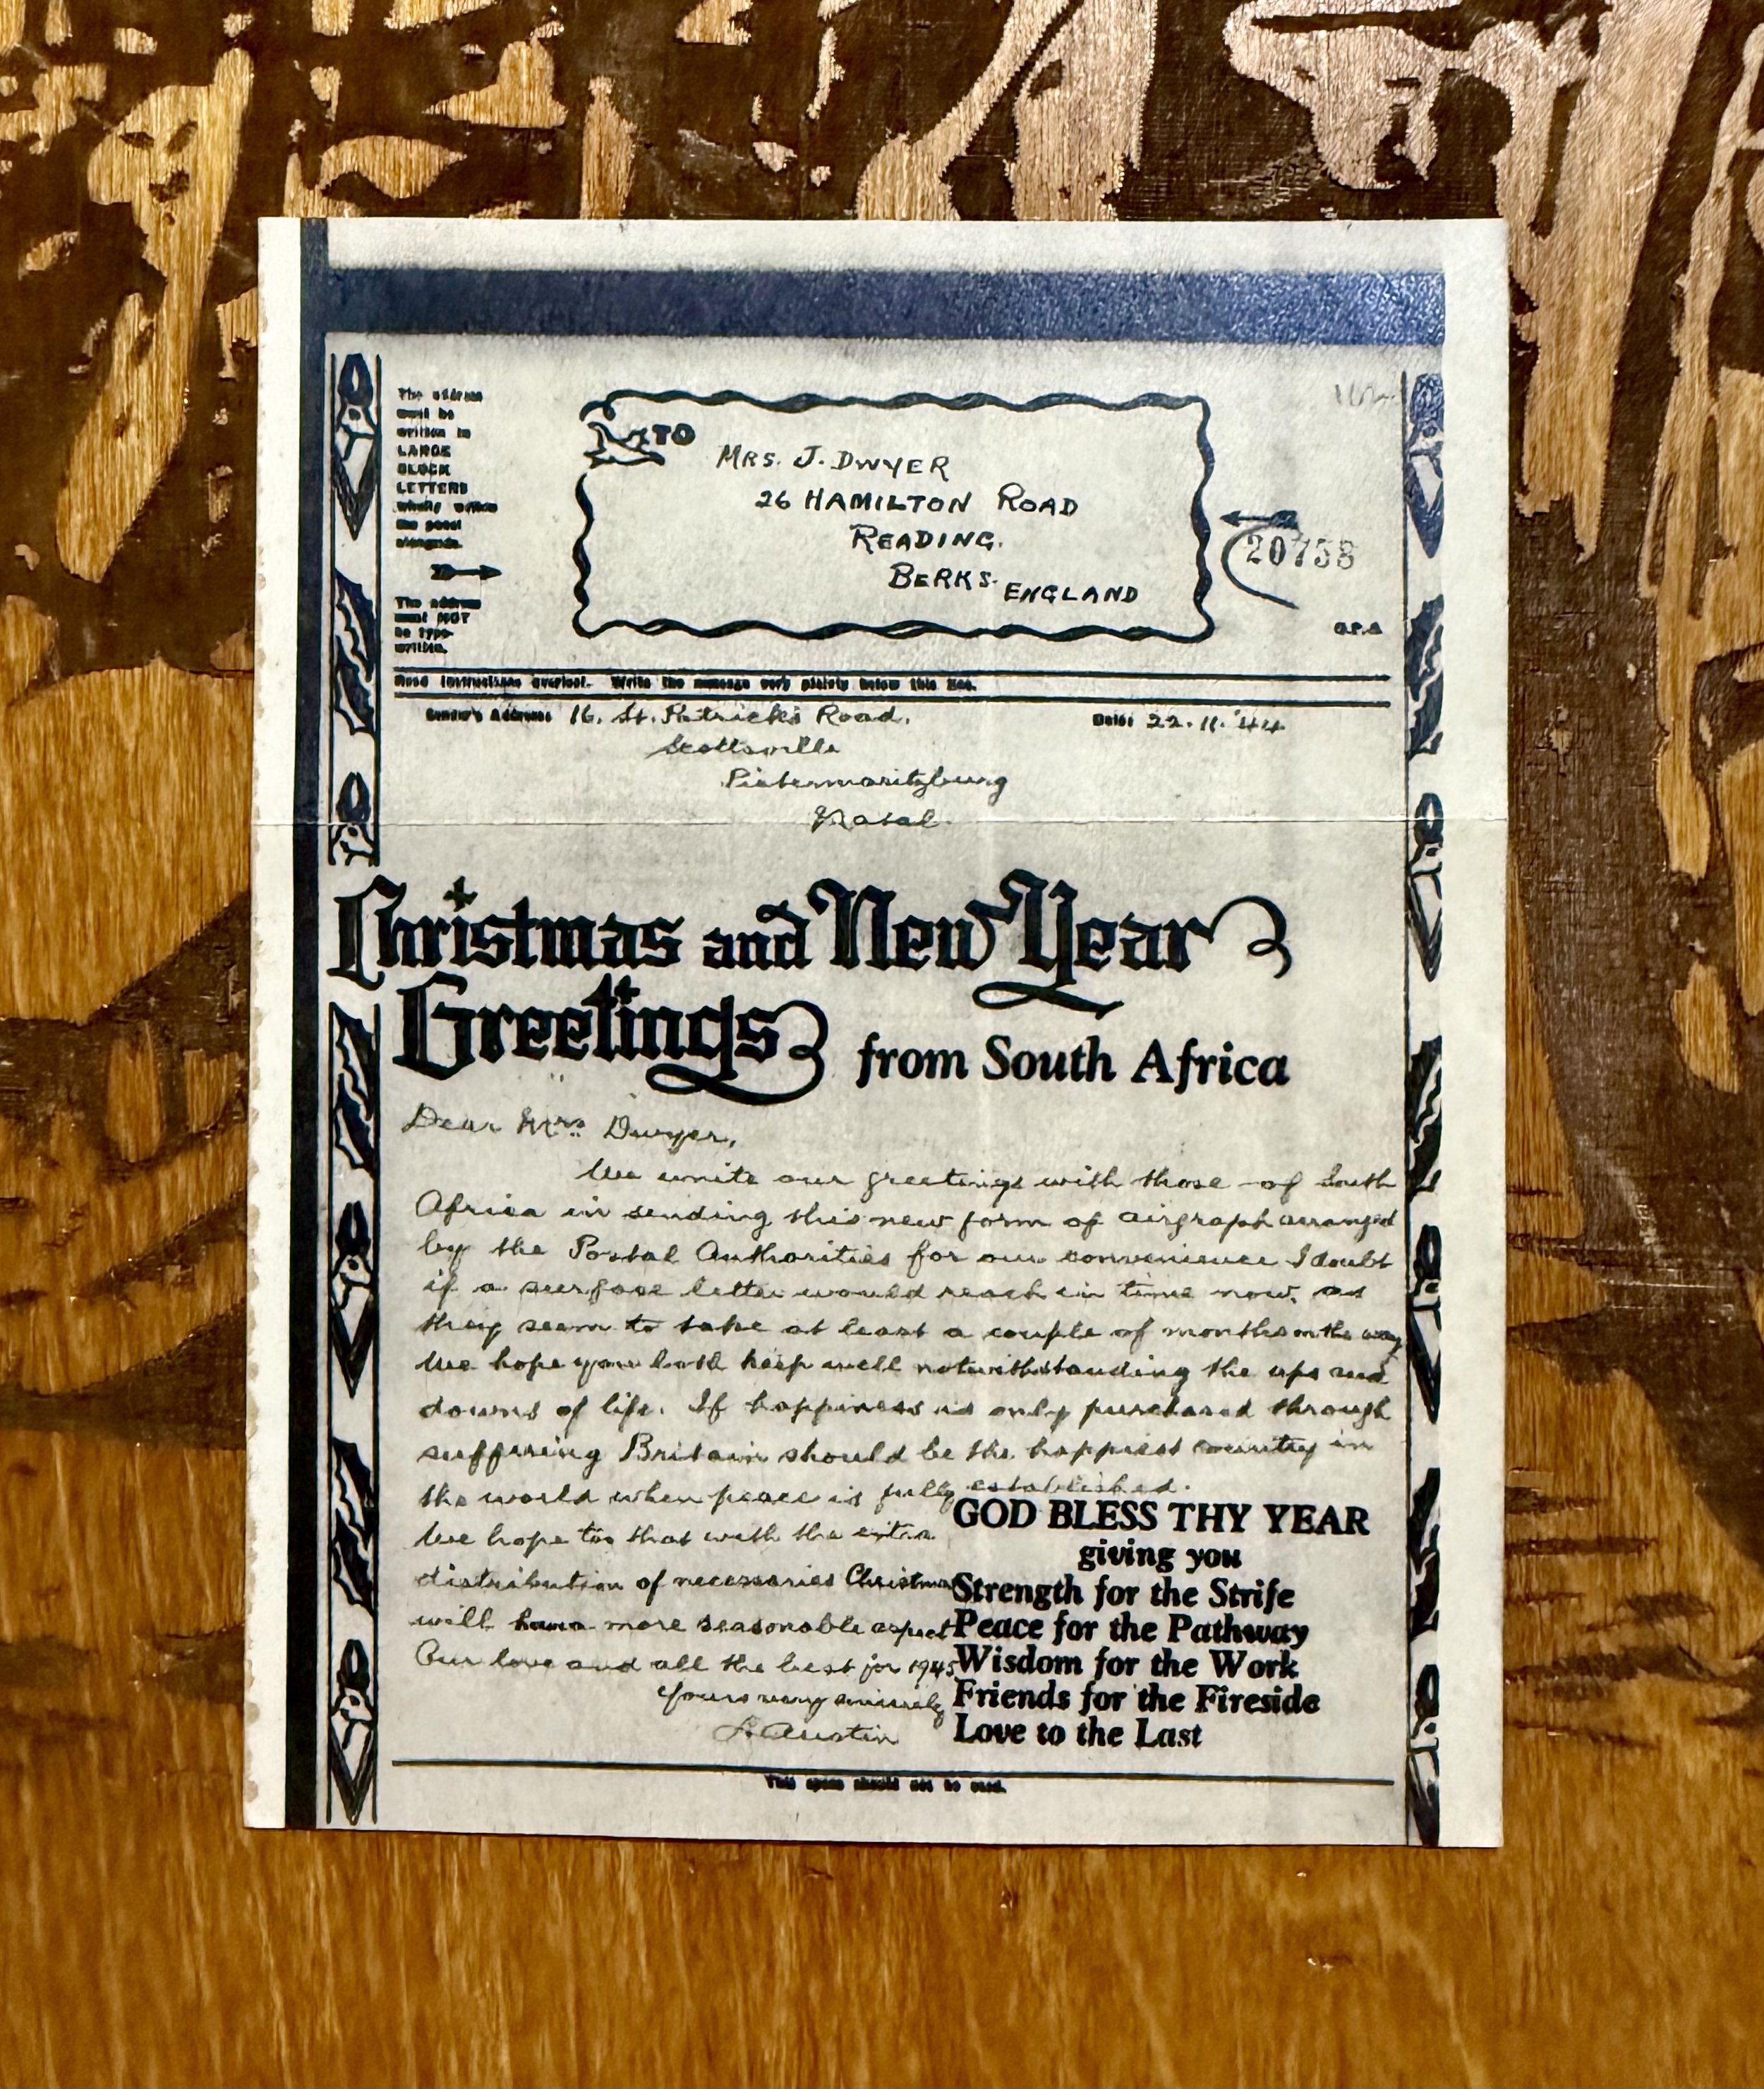 The address
must be
written in
LARGE
BLOCK
LETTERS
wholly within
the panel
alongside.
The address
must NOT
be type-
written.
TO
MRS. J. DWYER
26 HAMILTON ROAD
READING.
BERKS. ENGLAND
20758
Read instructions overleaf. Write the message very plainly below this line.
Sender's Address 16. St. Patrick's Road.
Date: 22.11.'44
Scottsville
Pietermaritzburg
Natal.
Christmas and New Year
Greetings from South Africa
Dear Mrs. Dwyer,
We unite our greetings with those of South
Africa in sending this new form of airgraph arranged
by the Postal Authorities for our convenience I doubt
if a surface letter would reach in time now, as
they seem to take at least a couple of months on the way
We hope you both keep well notwithstanding the ups and
downs of life. If happiness is only purchased through
suffering Britain should be the happiest country in
the world when peace is fully established.
We hope too that with the extra
distribution of necessaries Christmas
will have more seasonable aspect
Our love and all the best for 1945
Yours very sincerely
Austin
GOD BLESS THY YEAR
giving you
Strength for the Strife
Peace for the Pathway
Wisdom for the Work
Friends for the Fireside
Love to the Last
This space should not be used.